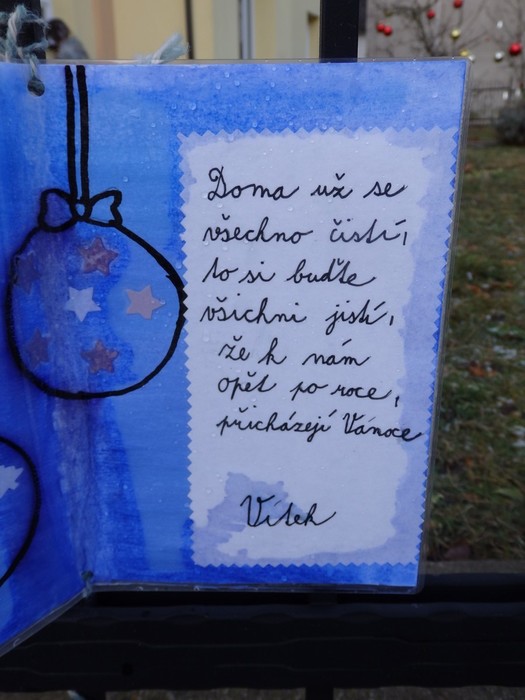 Doma už se
všechno čistí,
to si buďte
všichni jistí,
že k nám
opět po roce,
přicházejí Vánoce
Vítek